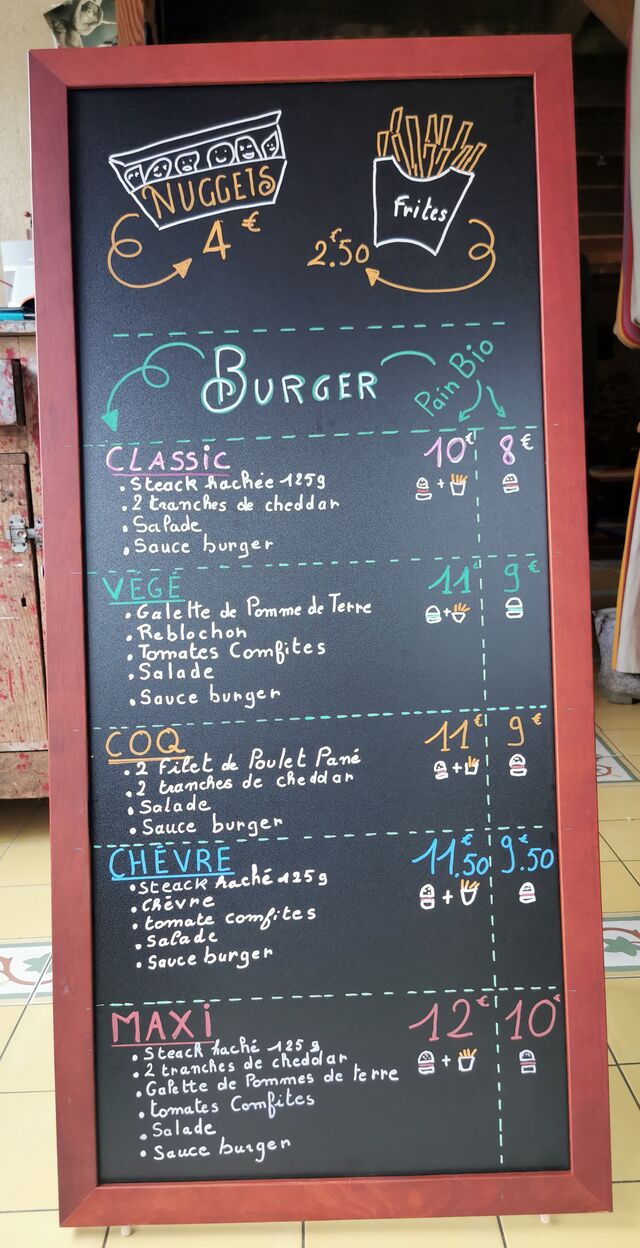 NUGGETS
4 €
Frites
2.€50
BURGER
Pain Bio
CLASSIC 10€ 8€
• Steack hachée 125g
• 2 tranches de cheddar
• Salade
• Sauce burger
VÉGÉ 11€ 9€
• Galette de Pomme de Terre
• Reblochon
• Tomates Comfites
• Salade
• Sauce burger
COQ 11€ 9€
• 2 Filet de Poulet Pané
• 2 tranches de cheddar
• Salade
• Sauce burger
CHÈVRE 11.€50 9.€50
• Steack haché 125g
• Chèvre
• tomate comfites
• Salade
• Sauce burger
MAXi 12€ 10€
• Steack haché 125g
• 2 tranches de cheddar
• Galette de Pommes de terre
• tomates Comfites
• Salade
• Sauce burger